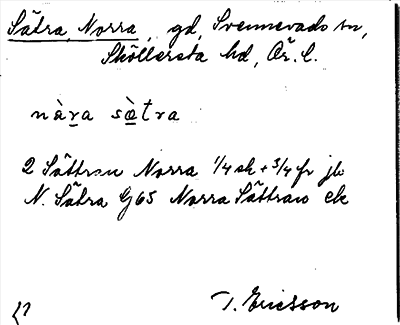 Sätra, Norra, gd, Svennevads sn,
Sköllersta hd, Ör. l.
nàra sæ̀tra
2 Sättran Norra 1/4 sk + 3/4 fr jb
N. Sätra G65 Norra Sättran ek
T. Ericsson